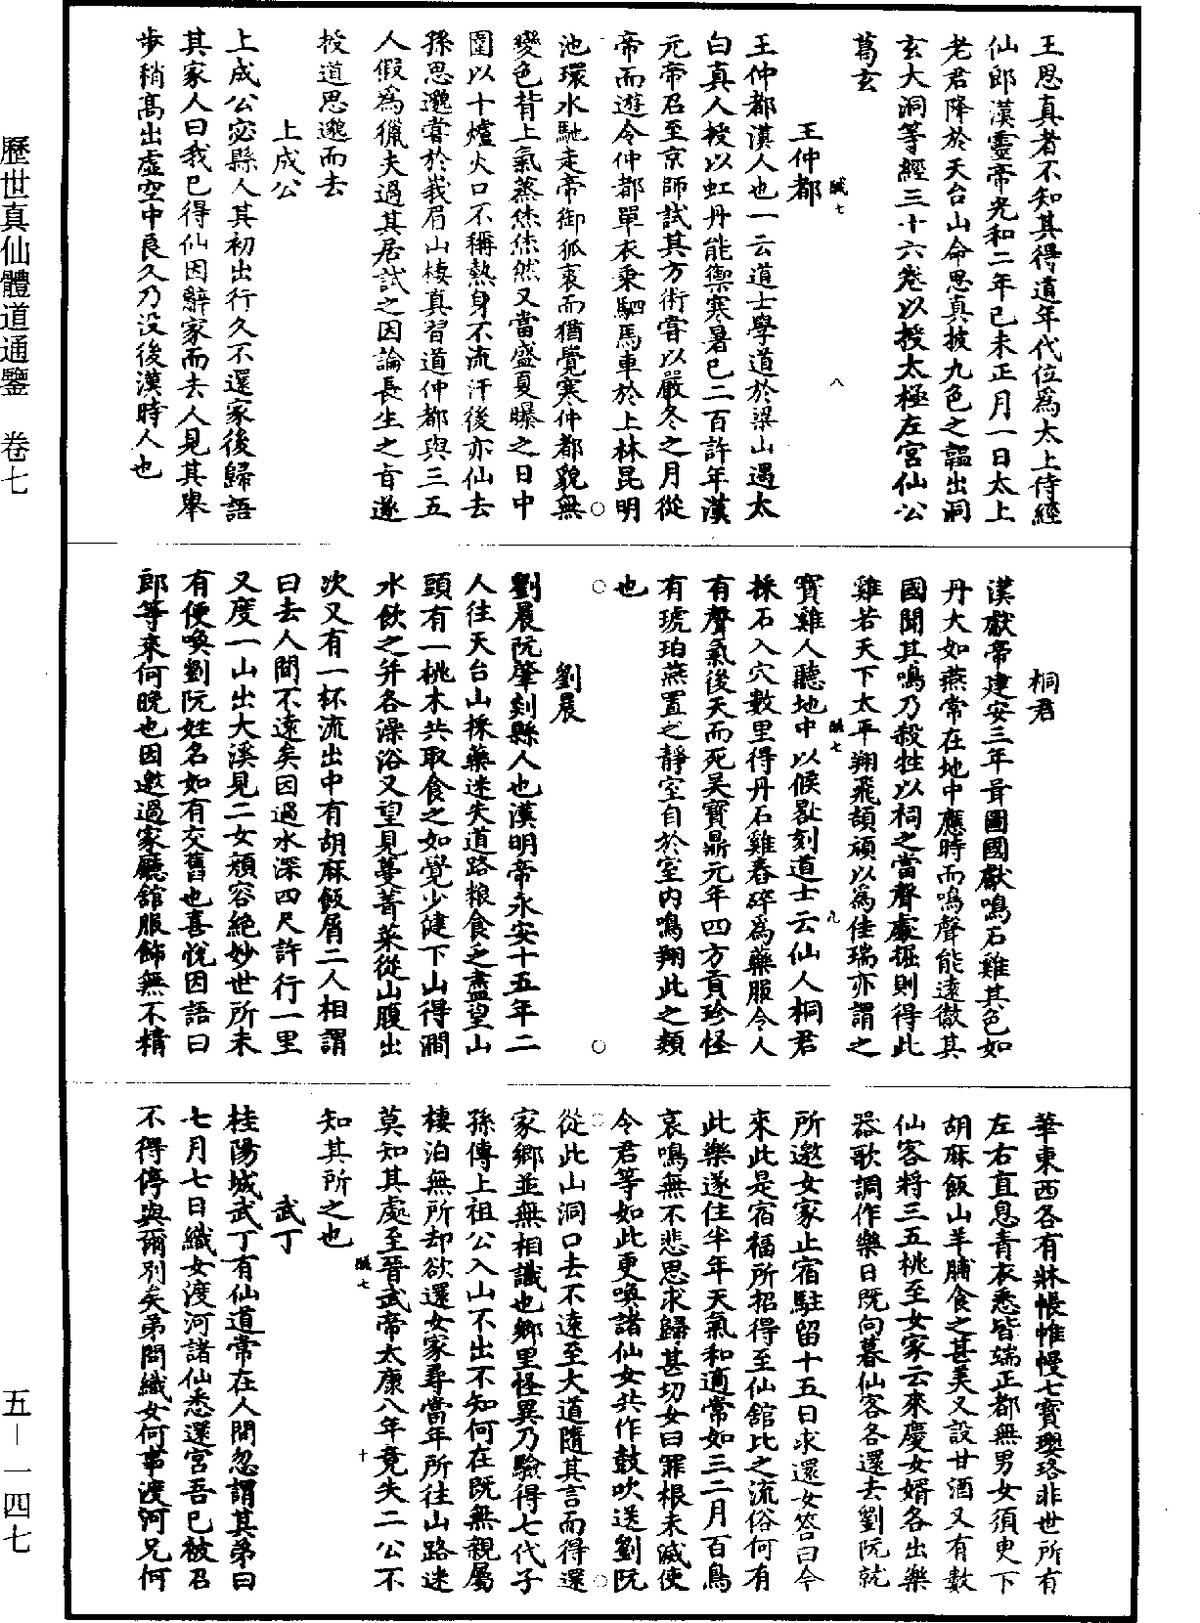 王思真者不知其得道年代位為太上侍經
仙郎漢靈帝光和二年己未正月一日太上
老君降於天台山命思真披九色之韞出洞
玄大洞等經三十六卷以授太極左宮仙公
葛玄
王仲都
王仲都漢人也一云道士學道於梁山遇太
白真人授以虹丹能禦寒暑已二百許年漢
元帝召至京師試其方術嘗以嚴冬之月從
帝而遊令仲都單衣乘駟馬車於上林昆明
池環水馳走帝御狐裘而猶覺寒仲都貌無
變色背上氣蒸烋烋然又當盛夏曝之日中
圍以十爐火口不稱熱身不流汗後亦仙去
孫思邈嘗於峩眉山棲真習道仲都與三五
人假為獵夫過其居試之因論長生之旨遂
授道思邈而去
上成公
上成公宓縣人其初出行久不還家後歸語
其家人曰我已得仙因辭家而去人見其舉
步稍高出虛空中良久乃没後漢時人也
桐君
漢獻帝建安三年胥圖國獻鳴石雞其色如
丹大如燕常在地中應時而鳴聲能遠徹其
國聞其鳴乃殺牲以祠之當聲處掘則得此
雞若天下太平翔飛頡頏以為佳瑞亦謂之
寶雞人聽地中以候晷刻道士云仙人桐君
採石入穴數里得丹石雞舂碎為藥服令人
有聲氣後天而死吴寶鼎元年四方貢珍怪
有琥珀燕置之靜室自於室内鳴翔此之類
也
劉晨
劉晨阮肇剡縣人也漢明帝永安十五年二
人往天台山採藥迷失道路粮食乏盡望山
頭有一桃木共取食之如覺少健下山得澗
水飲之并各澡浴又望見蔓菁菜從山腹出
次又有一杯流出中有胡麻飯屑二人相謂
曰去人間不遠矣因過水深四尺許行一里
又度一山出大溪見二女顔容絶妙世所未
有便喚劉阮姓名如有交舊也喜悅因語曰
郎等來何晚也因邀過家廳舘服飾無不精
華東西各有牀帳帷幔七寶瓔珞非世所有
左右直息青衣悉皆端正都無男女須臾下
胡麻飯山羊脯食之甚美又設甘酒又有數
仙客將三五桃至女家云來慶女婿各出樂
器歌調作樂日既向暮仙客各還去劉阮就
所邀女家止宿駐留十五日求還女答曰今
來此是宿福所招得至仙舘比之流俗何有
此樂遂住半年天氣和適常如三二月百鳥
哀鳴無不悲思求歸甚切女曰罪根未滅使
令君等如此更喚諸仙女共作鼓吹送劉阮
從此山洞口去不遠至大道隨其言而得還
家鄉並無相識也鄉里怪異乃驗得七代子
孫傳上祖公入山不出不知何在既無親屬
棲泊無所却欲還女家尋當年所往山路迷
莫知其處至晉武帝太康八年竟失二公不
知其所之也
武丁
桂陽城武丁有仙道常在人間忽謂其弟曰
七月七日織女渡河諸仙悉還宮吾已被召
不得停與爾別矣弟問織女何事渡河兄何
歷世真仙體道通鑒 卷七
五－一四七